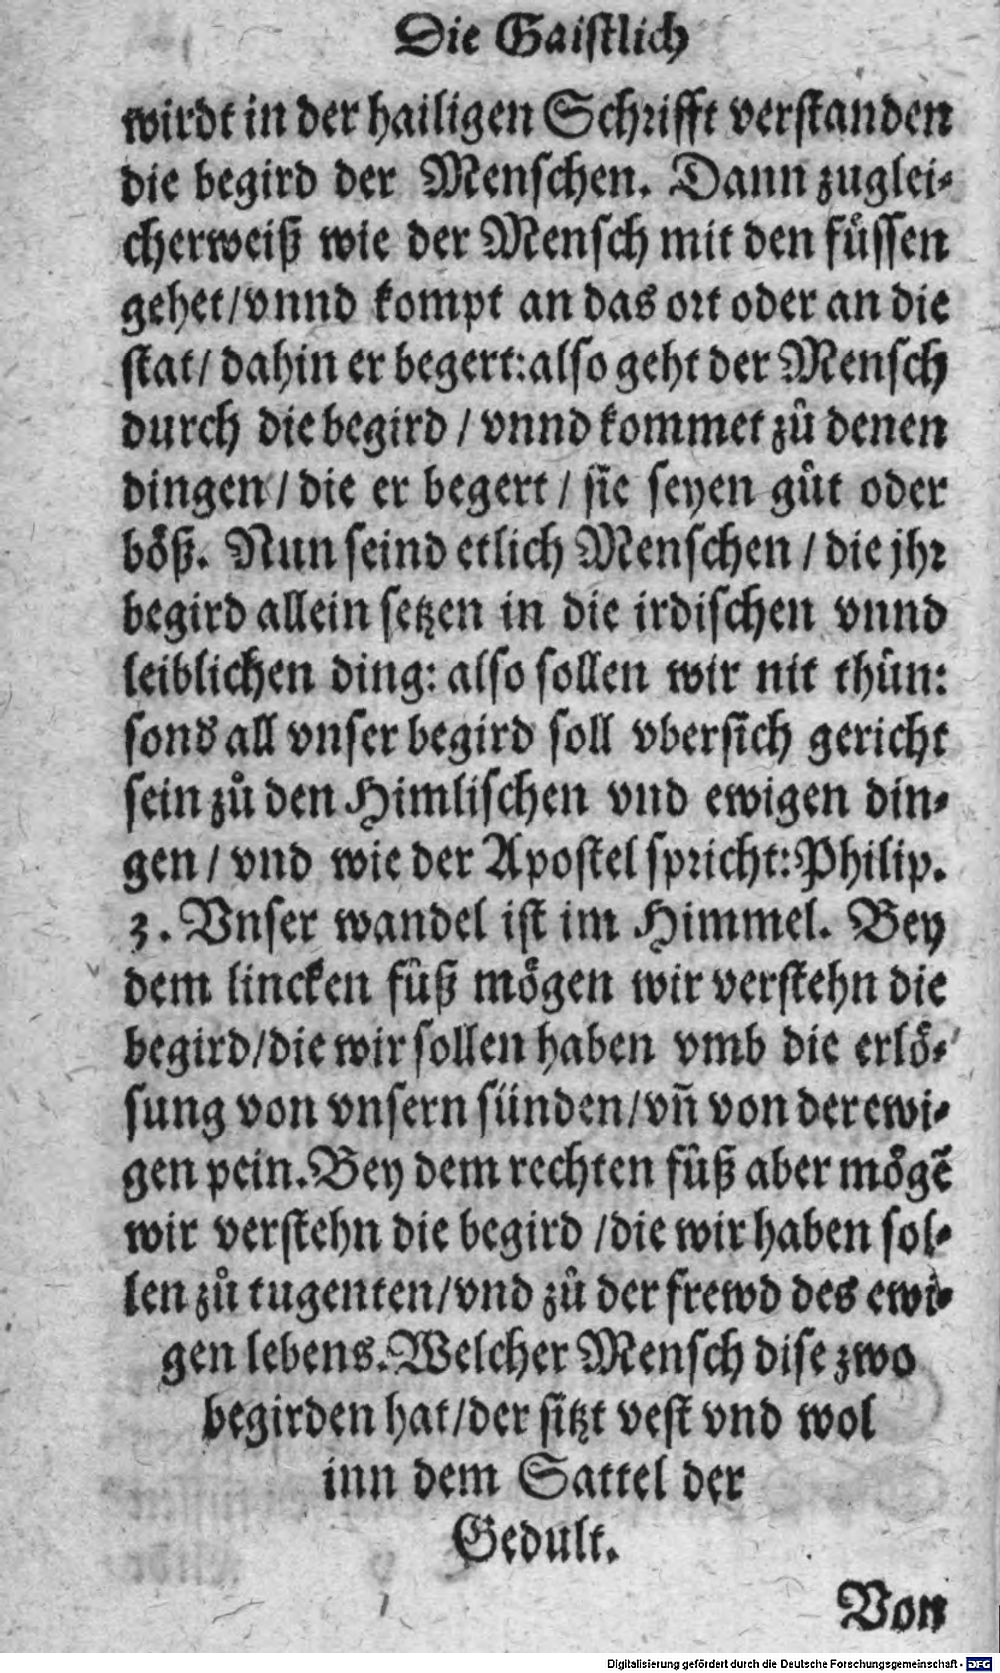 Die Gaistlich
wirdt in der hailigen Schrifft verstanden
die begird der Menschen. Dann zuglei⸗
cherweiß wie der Mensch mit den füssen
gehet/vnnd kompt an das ort oder an die
stat/ dahin er begert: also geht der Mensch
durch die begird / vnnd kommet zů denen
dingen / die er begert / sie seyen gůt oder
böß. Nun seind etlich Menschen / die jhr
begird allein setzen in die irdischen vnnd
leiblichen ding: also sollen wir nit thůn:
sond̕ all vnser begird soll vbersich gericht
sein zů den Himlischen vnd ewigen din⸗
gen / vnd wie der Apostel spricht: Philip.
3. Vnser wandel ist im Himmel. Bey
dem lincken fůß mögen wir verstehn die
begird/die wir sollen haben vmb die erlö⸗
sung von vnsern sünden/vñ von der ewi⸗
gen pein. Bey dem rechten fůß aber mögẽ
wir verstehn die begird /die wir haben sol⸗
len zů tugenten/vnd zů der frewd des ewi⸗
gen lebens. Welcher Mensch dise zwo
begirden hat/der sitzt vest vnd wol
inn dem Sattel der
Gedult.
Von
Digitalisierung gefördert durch die Deutsche Forschungsgemeinschaft - DFG